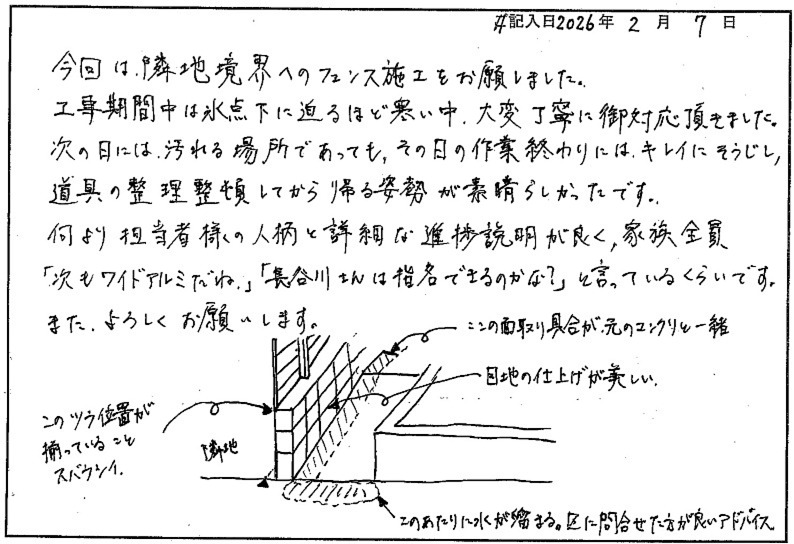 #記入日2026年 2 月 7 日
今回は、隣地境界へのフェンス施工をお願しました。
工事期間中は氷点下に迫るほど寒い中、大変丁寧に御対応頂きました。
次の日には、汚れる場所であっても、その日の作業終わりには、キレイにそうじし、
道具の整理整頓してから帰る姿勢が素晴らしかったです。
何より担当者様の人柄と詳細な進捗説明が良く、家族全員
「次もワイドアルミだね。」「長谷川さんは指名できるのかな?」と言っているくらいです。
また、よろしくお願いします。
ここの面取り具合が、元のコンクリと一緒
目地の仕上げが美しい。
このツラ位置が
揃っていること
スバラシイ.
隣地
このあたりに水が溜まる。区に問合せた方が良いアドバイス